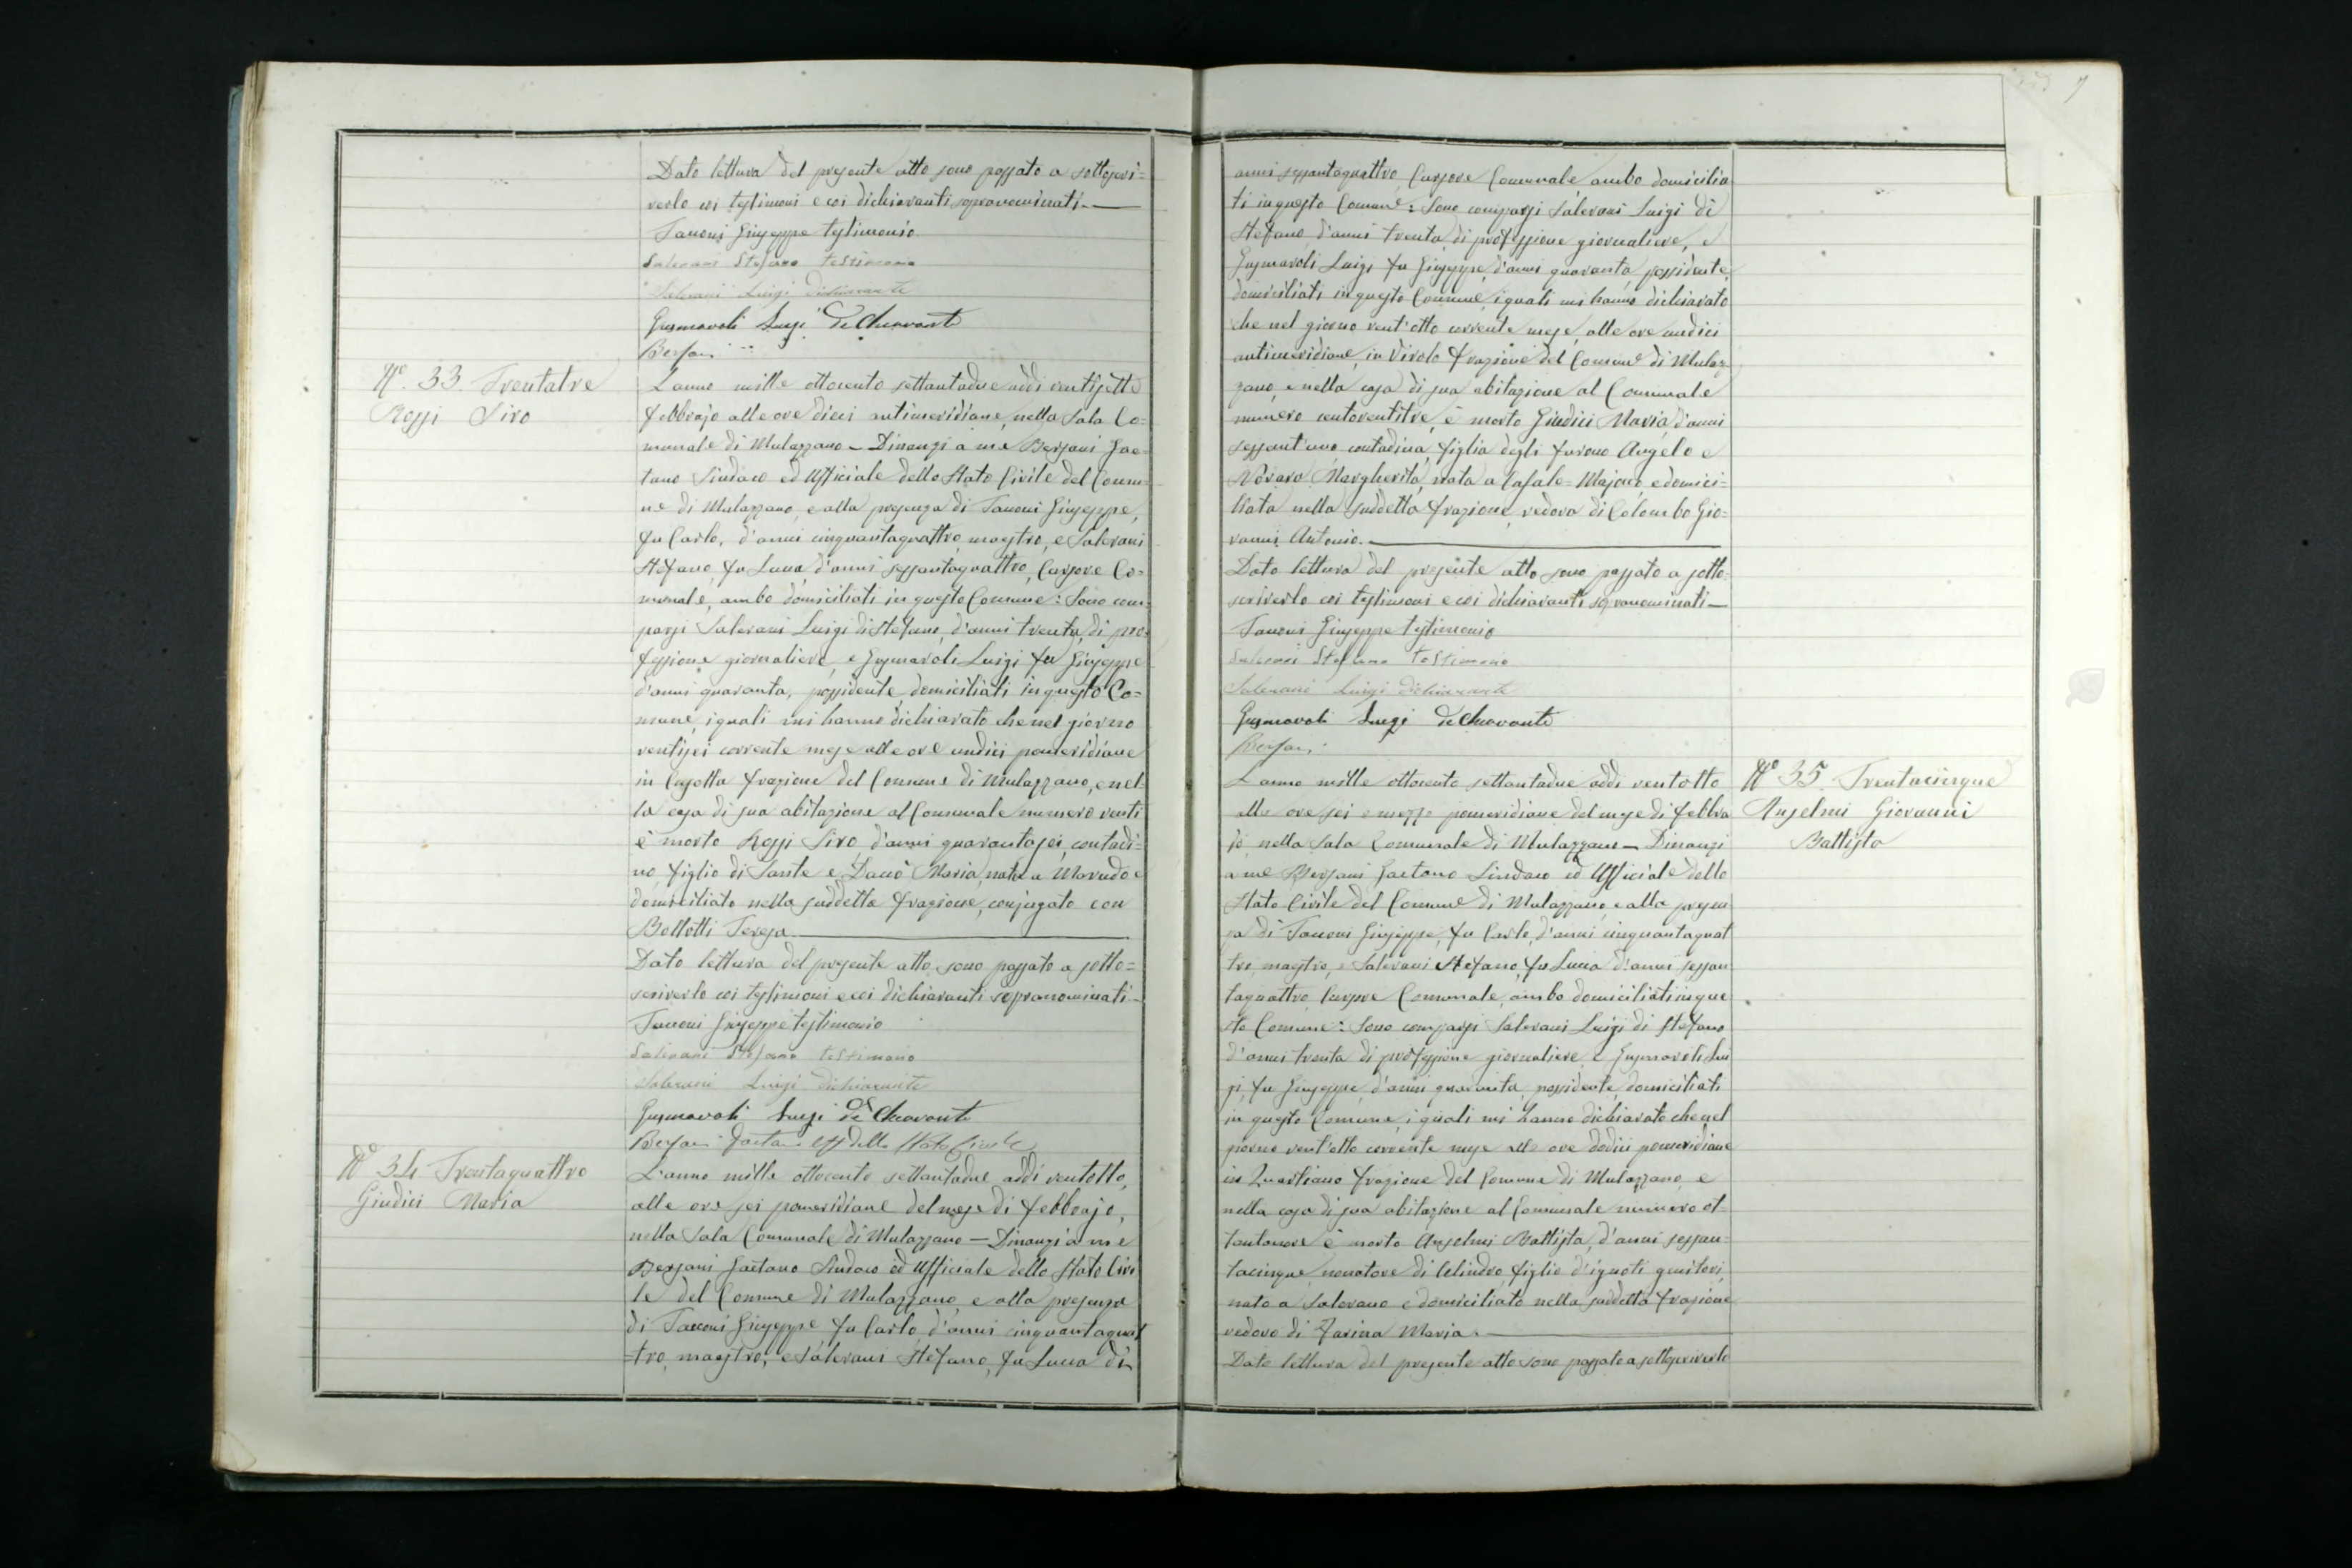 Dato lettura del presente atto sono passato a sottoscri=
verlo coi testimoni e coi dichiaranti sopranominati.
Tanoni Giuseppe testimonio
Salerani Stefano testimonio
Salerani Luigi dichiarante
Gusmaroli Luigi dichiarante
Bersani
N.º 33 Trentatre
Rossi Siro
L'anno mille ottocento settantadue addi ventisette
febbrajo alle ore dieci antimeridiane, nella Sala Co=
munale di Mulazzano – Dinanzi a me Bersani Gae=
tano Sindaco ed Ufficiale dello Stato Civile del Comu=
ne di Mulazzano, e alla presenza di Tanoni Giuseppe,
fu Carlo, d'anni cinquantaquattro, maestro, e Salerani
Stefano, fu Luca, d'anni sessantaquattro, Cursore Co=
munale, ambo domiciliati in questo Comune: Sono com=
parsi Salerani Luigi di Stefano, d'anni trenta, di pro=
fessione giornaliere, e Gusmaroli Luigi fu Giuseppe
d'anni quaranta, possidente, domiciliati in questo Co=
mune, i quali mi hanno dichiarato che nel giorno
ventisei corrente mese alle ore undici pomeridiane
in Casotta frazione del Comune di Mulazzano, e nel=
la casa di sua abitazione al Comunale numero venti
è morto Rossi Siro, d'anni quarantasei, contadi=
no, figlio di Sante e Daccò Maria, nato a Marudo e
domiciliato nella suddetta frazione, conjugato con
Bottotti Teresa.
Dato lettura del presente atto, sono passato a sotto=
scriverlo coi testimoni e coi dichiaranti sopranominati.
Tanoni Giuseppe testimonio
Salerani Stefano testimonio
Salerani Luigi dichiarante
Gusmaroli Luigi dichiarante
Bersani Gaetano Uff dello Stato Civile
N.º 34 Trentaquattro
Giudici Maria
L'anno mille ottocento settantadue addi ventotto,
alle ore sei pomeridiane del mese di febbrajo,
nella Sala Comunale di Mulazzano – Dinanzi a me
Bersani Gaetano Sindaco ed Ufficiale dello Stato Civi
le del Comune di Mulazzano, e alla presenza
di Tanoni Giuseppe fu Carlo, d'anni cinquantaquat
=tro, maestro, e Salerani Stefano, fu Luca di
anni sessantaquattro, Cursore Comunale, ambo domicilia
ti in questo Comune: Sono comparsi Salerani Luigi di
Stefano, d'anni trenta, di professione giornaliere, e
Gusmaroli Luigi fu Giuseppe, d'anni quaranta, possidente,
domiciliati in questo Comune, i quali mi hanno dichiarato
che nel giorno vent'otto corrente mese, alle ore undici
antimeridiane, in Virolo frazione del Comune di Mulaz
zano, e nella casa di sua abitazione al Comunale
numero centoventitre, è morto Giudici Maria, d'anni
sessant'uno, contadina, figlia degli furono Angelo e
Novaro Margherita, nata a Casale=Majoco e domici=
liata nella suddetta frazione, vedova di Colombo Gio=
vanni Antonio.
Dato lettura del presente atto sono passato a sotto=
scriverlo coi testimoni e coi dichiaranti sopranominati
Tanoni Giuseppe testimonio
Salerani Stefano testimonio
Salerani Luigi dichiarante
Gusmaroli Luigi dichiarante
Bersani
L'anno mille ottocento settantadue addi ventotto
alle ore sei e mezzo pomeridiane del mese di febbra
jo, nella Sala Comunale di Mulazzano – Dinanzi
a me Bersani Gaetano Sindaco ed Ufficiale dello
Stato Civile del Comune di Mulazzano, e alla presen
za di Tanoni Giuseppe, fu Carlo, d'anni cinquantaquat
tro, maestro, e Salerani Stefano, fu Luca d'anni sessan
taquattro, Cursore Comunale, ambo domiciliati in que
sto Comune: Sono comparsi Salerani Luigi di Stefano
d'anni trenta di professione giornaliere, e Gusmaroli Lui
gi, fu Giuseppe, d'anni quaranta, possidente, domiciliati
in questo Comune, i quali mi hanno dichiarato che nel
giorno vent'otto corrente mese alle ore dodici pomeridiane
in Quartiano frazione del Comune di Mulazzano, e
nella casa di sua abitazione al Comunale numero ot=
tantanove è morto Anselmi Battista, d'anni sessan=
tacinque, suonatore di Cilindro, figlio d'ignoti genitori,
nato a Salerano e domiciliato nella suddetta frazione
vedovo di Farina Maria.
Dato lettura del presente atto sono passato a sottoscriverlo
N.º 35 Trentacinque
Anselmi Giovanni
Battista